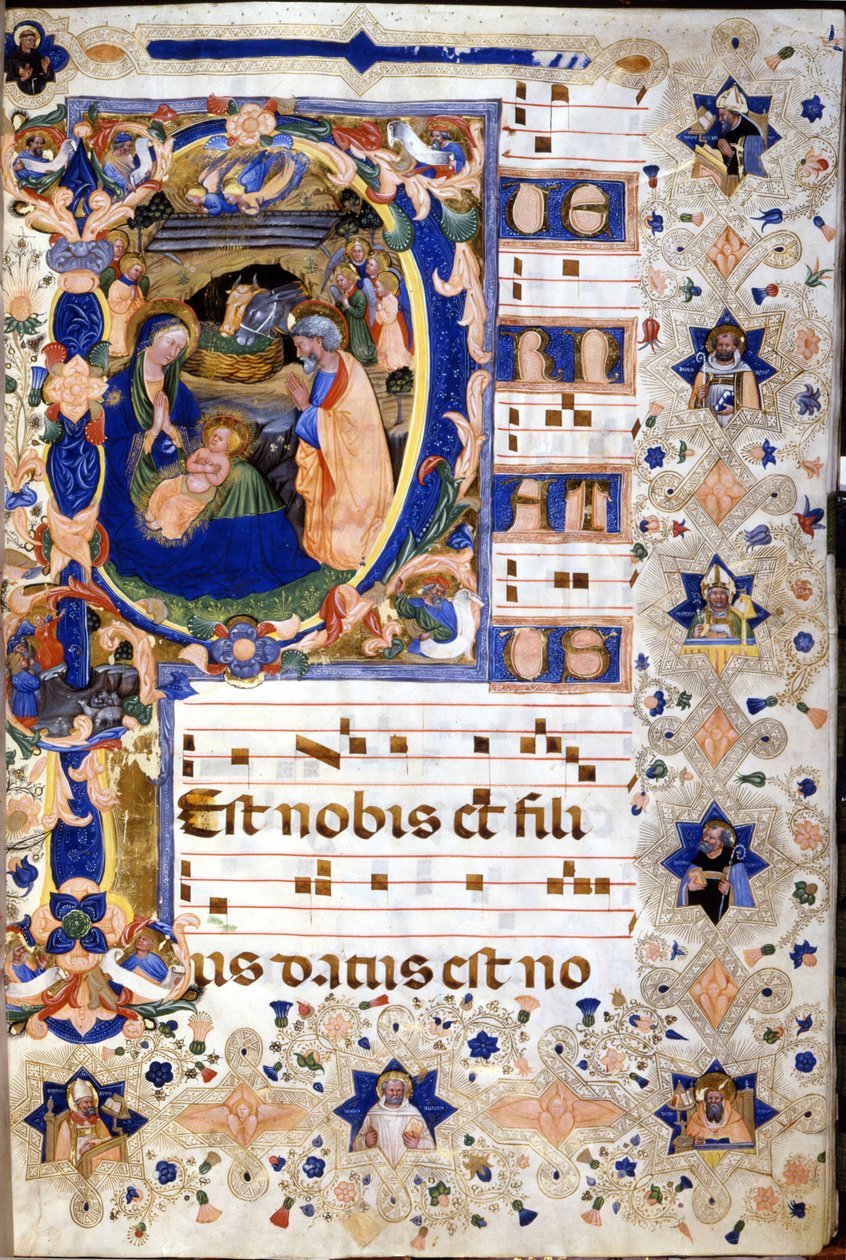 PUE
RN
AT
US
Est nobis et fili
us datus est no